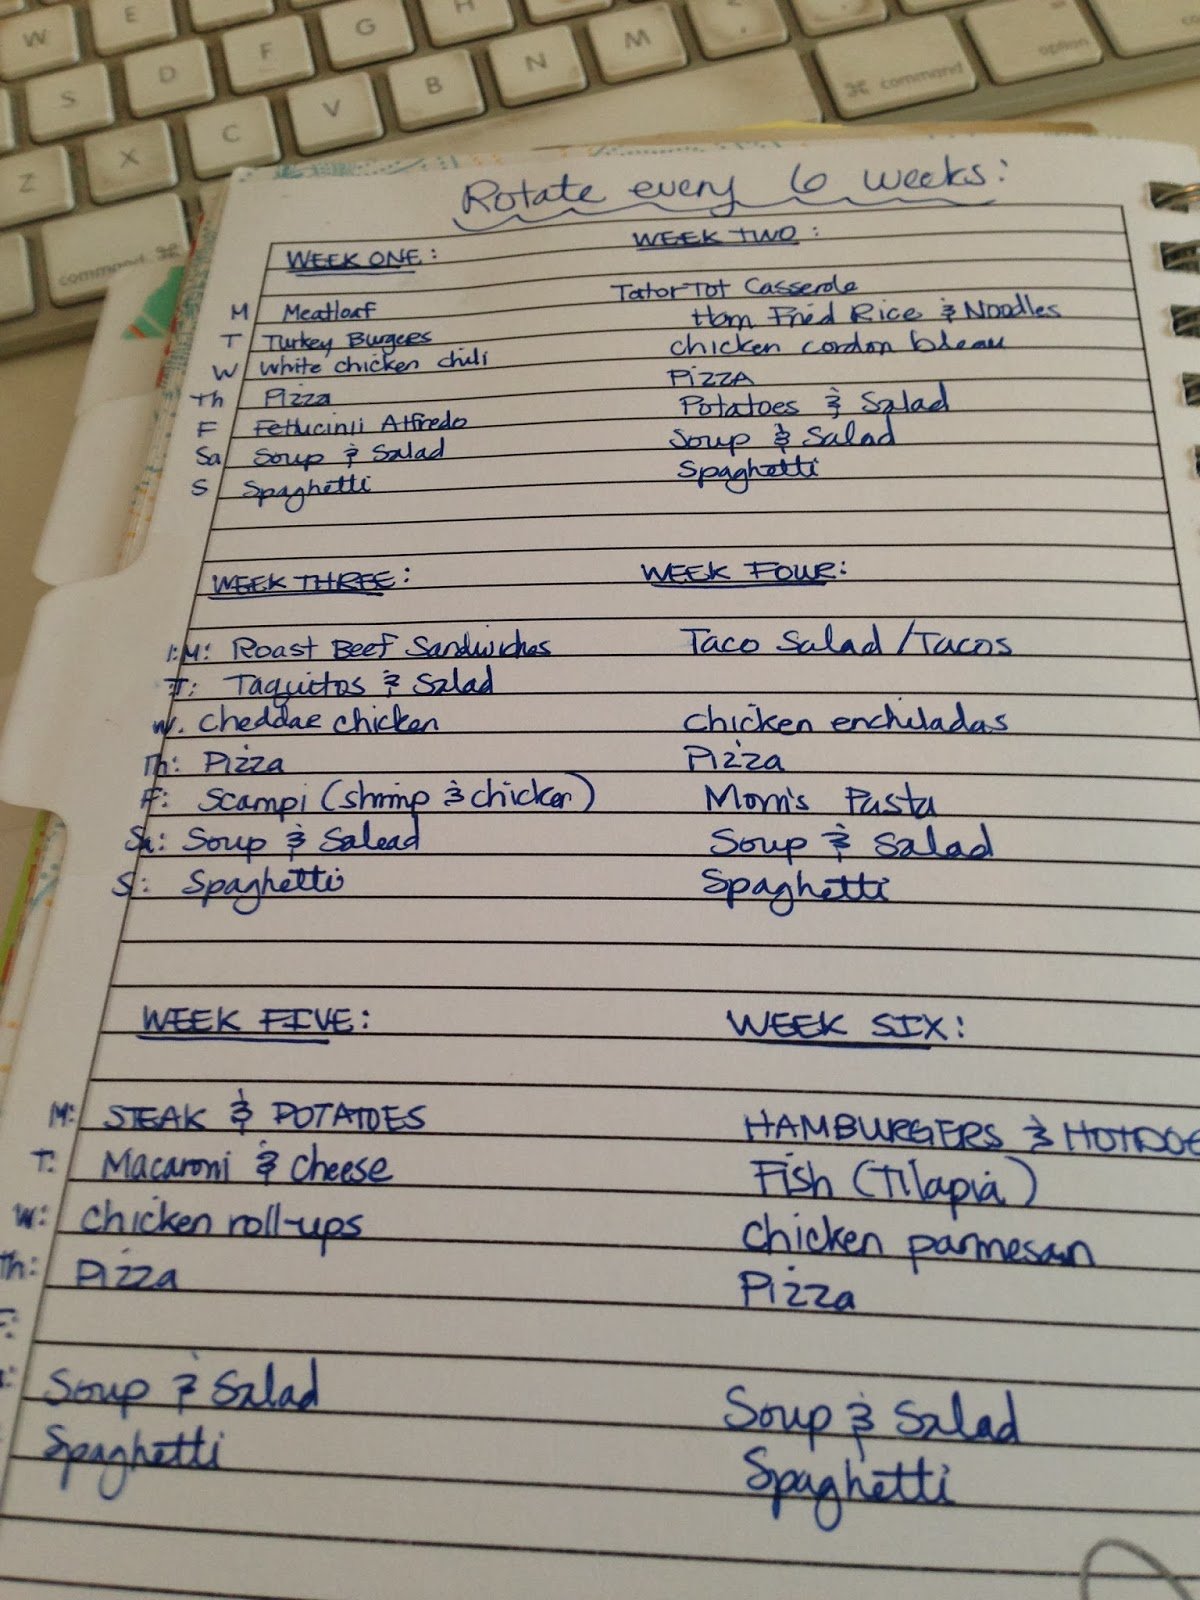 W E F G H
S D F
Z X C V B N M
command ⌘ ⌘ command option
Rotate every 6 weeks:
WEEK ONE: WEEK TWO:
M Meatloaf Tator Tot Casserole
T Turkey Burgers Ham Fried Rice & Noodles
W White chicken chili Chicken cordon bleau
Th Pizza PIZZA
F Fettucinii Alfredo Potatoes & Salad
Sa Soup & Salad Soup & Salad
S Spaghetti Spaghetti
WEEK THREE: WEEK FOUR:
M: Roast Beef Sandwiches Taco Salad/Tacos
T: Taquitos & Salad
W. Cheddar chicken Chicken enchiladas
Th: Pizza Pizza
F: Scampi (shrimp & chicken) Mom's Pasta
Sa: Soup & Salead Soup & Salad
S: Spaghetti Spaghetti
WEEK FIVE: WEEK SIX:
M: STEAK & POTATOES HAMBURGERS & HOTDOG
T: Macaroni & Cheese Fish (Tilapia)
W: Chicken roll-ups Chicken parmesan
Th: Pizza Pizza
F:
Soup & Salad Soup & Salad
Spaghetti Spaghetti